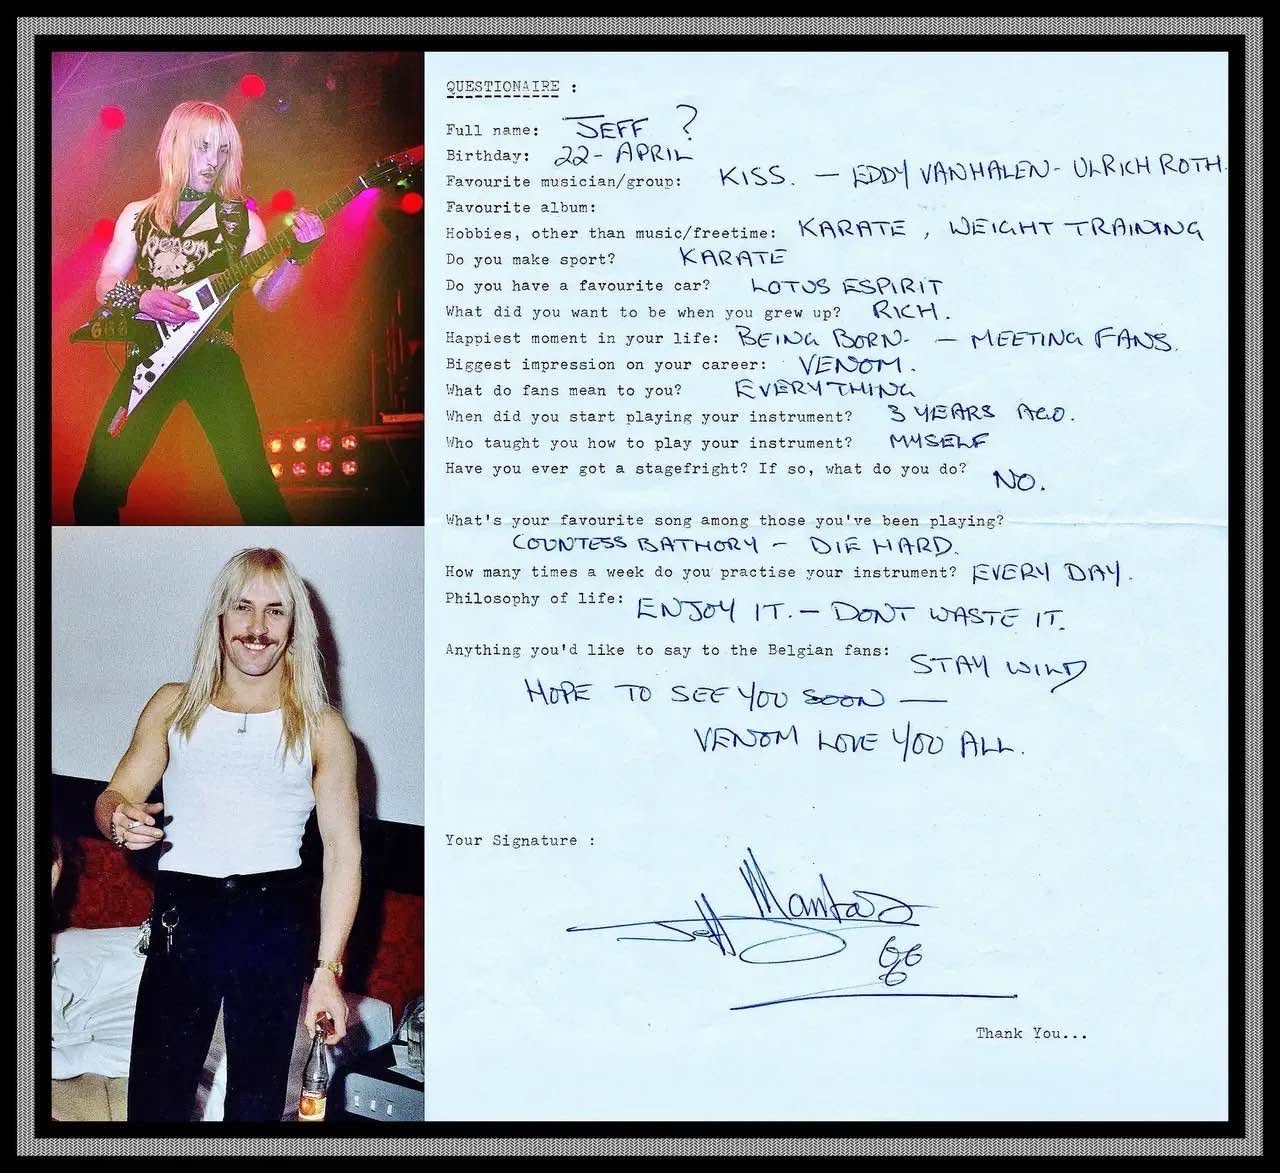 Venom
666
QUESTIONAIRE :
Full name: JEFF ?
Birthday: 22- APRIL
Favourite musician/group: KISS. — EDDY VANHALEN - ULRICH ROTH.
Favourite album:
Hobbies, other than music/freetime: KARATE , WEIGHT TRAINING
Do you make sport? KARATE
Do you have a favourite car? LOTUS ESPIRIT
What did you want to be when you grew up? RICH.
Happiest moment in your life: BEING BORN- — MEETING FANS.
Biggest impression on your career: VENOM.
What do fans mean to you? EVERYTHING
When did you start playing your instrument? 3 YEARS AGO.
Who taught you how to play your instrument? MYSELF
Have you ever got a stagefright? If so, what do you do? NO.
What's your favourite song among those you've been playing?
COUNTESS BATHORY - DIE HARD.
How many times a week do you practise your instrument? EVERY DAY.
Philosophy of life: ENJOY IT. - DONT WASTE IT.
Anything you'd like to say to the Belgian fans: STAY WILD
HOPE TO SEE YOU SOON —
VENOM LOVE YOU ALL.
Your Signature :
Jeff Mantas
666
Thank You...